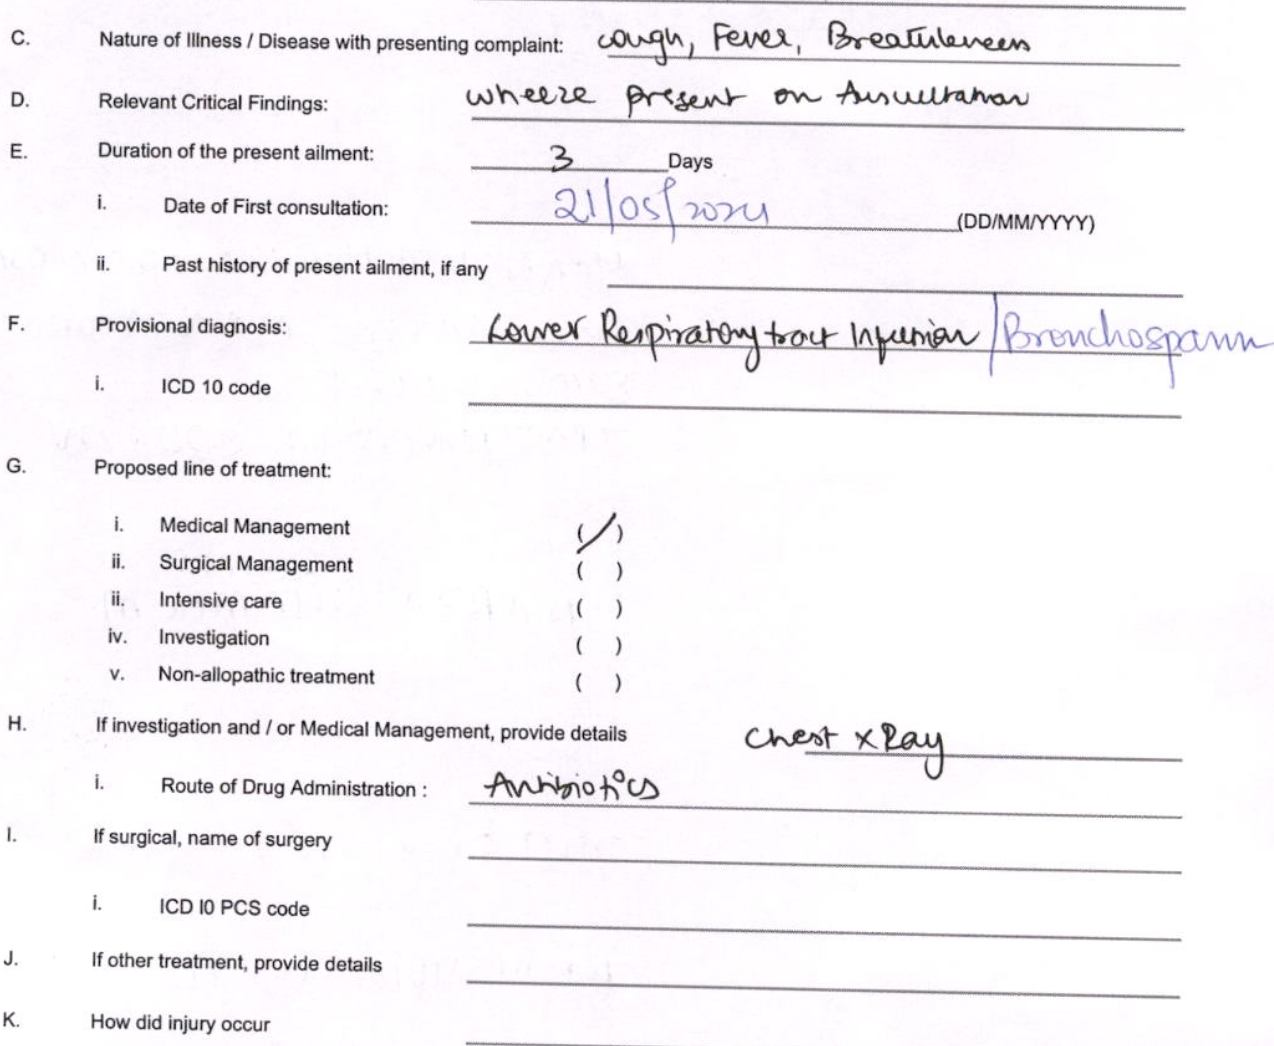 C. Nature of Illness / Disease with presenting complaint: cough, Fever, Breathlessness
D. Relevant Critical Findings: wheeze present on Auscultation
E. Duration of the present ailment: 3 Days
i. Date of First consultation: 21/05/2024 (DD/MM/YYYY)
ii. Past history of present ailment, if any
F. Provisional diagnosis: Lower Respiratory tract Infection / Bronchospasm
i. ICD 10 code
G. Proposed line of treatment:
i. Medical Management (/)
ii. Surgical Management ( )
ii. Intensive care ( )
iv. Investigation ( )
v. Non-allopathic treatment ( )
H. If investigation and / or Medical Management, provide details Chest x Ray
i. Route of Drug Administration : Antibiotics
I. If surgical, name of surgery
i. ICD I0 PCS code
J. If other treatment, provide details
K. How did injury occur